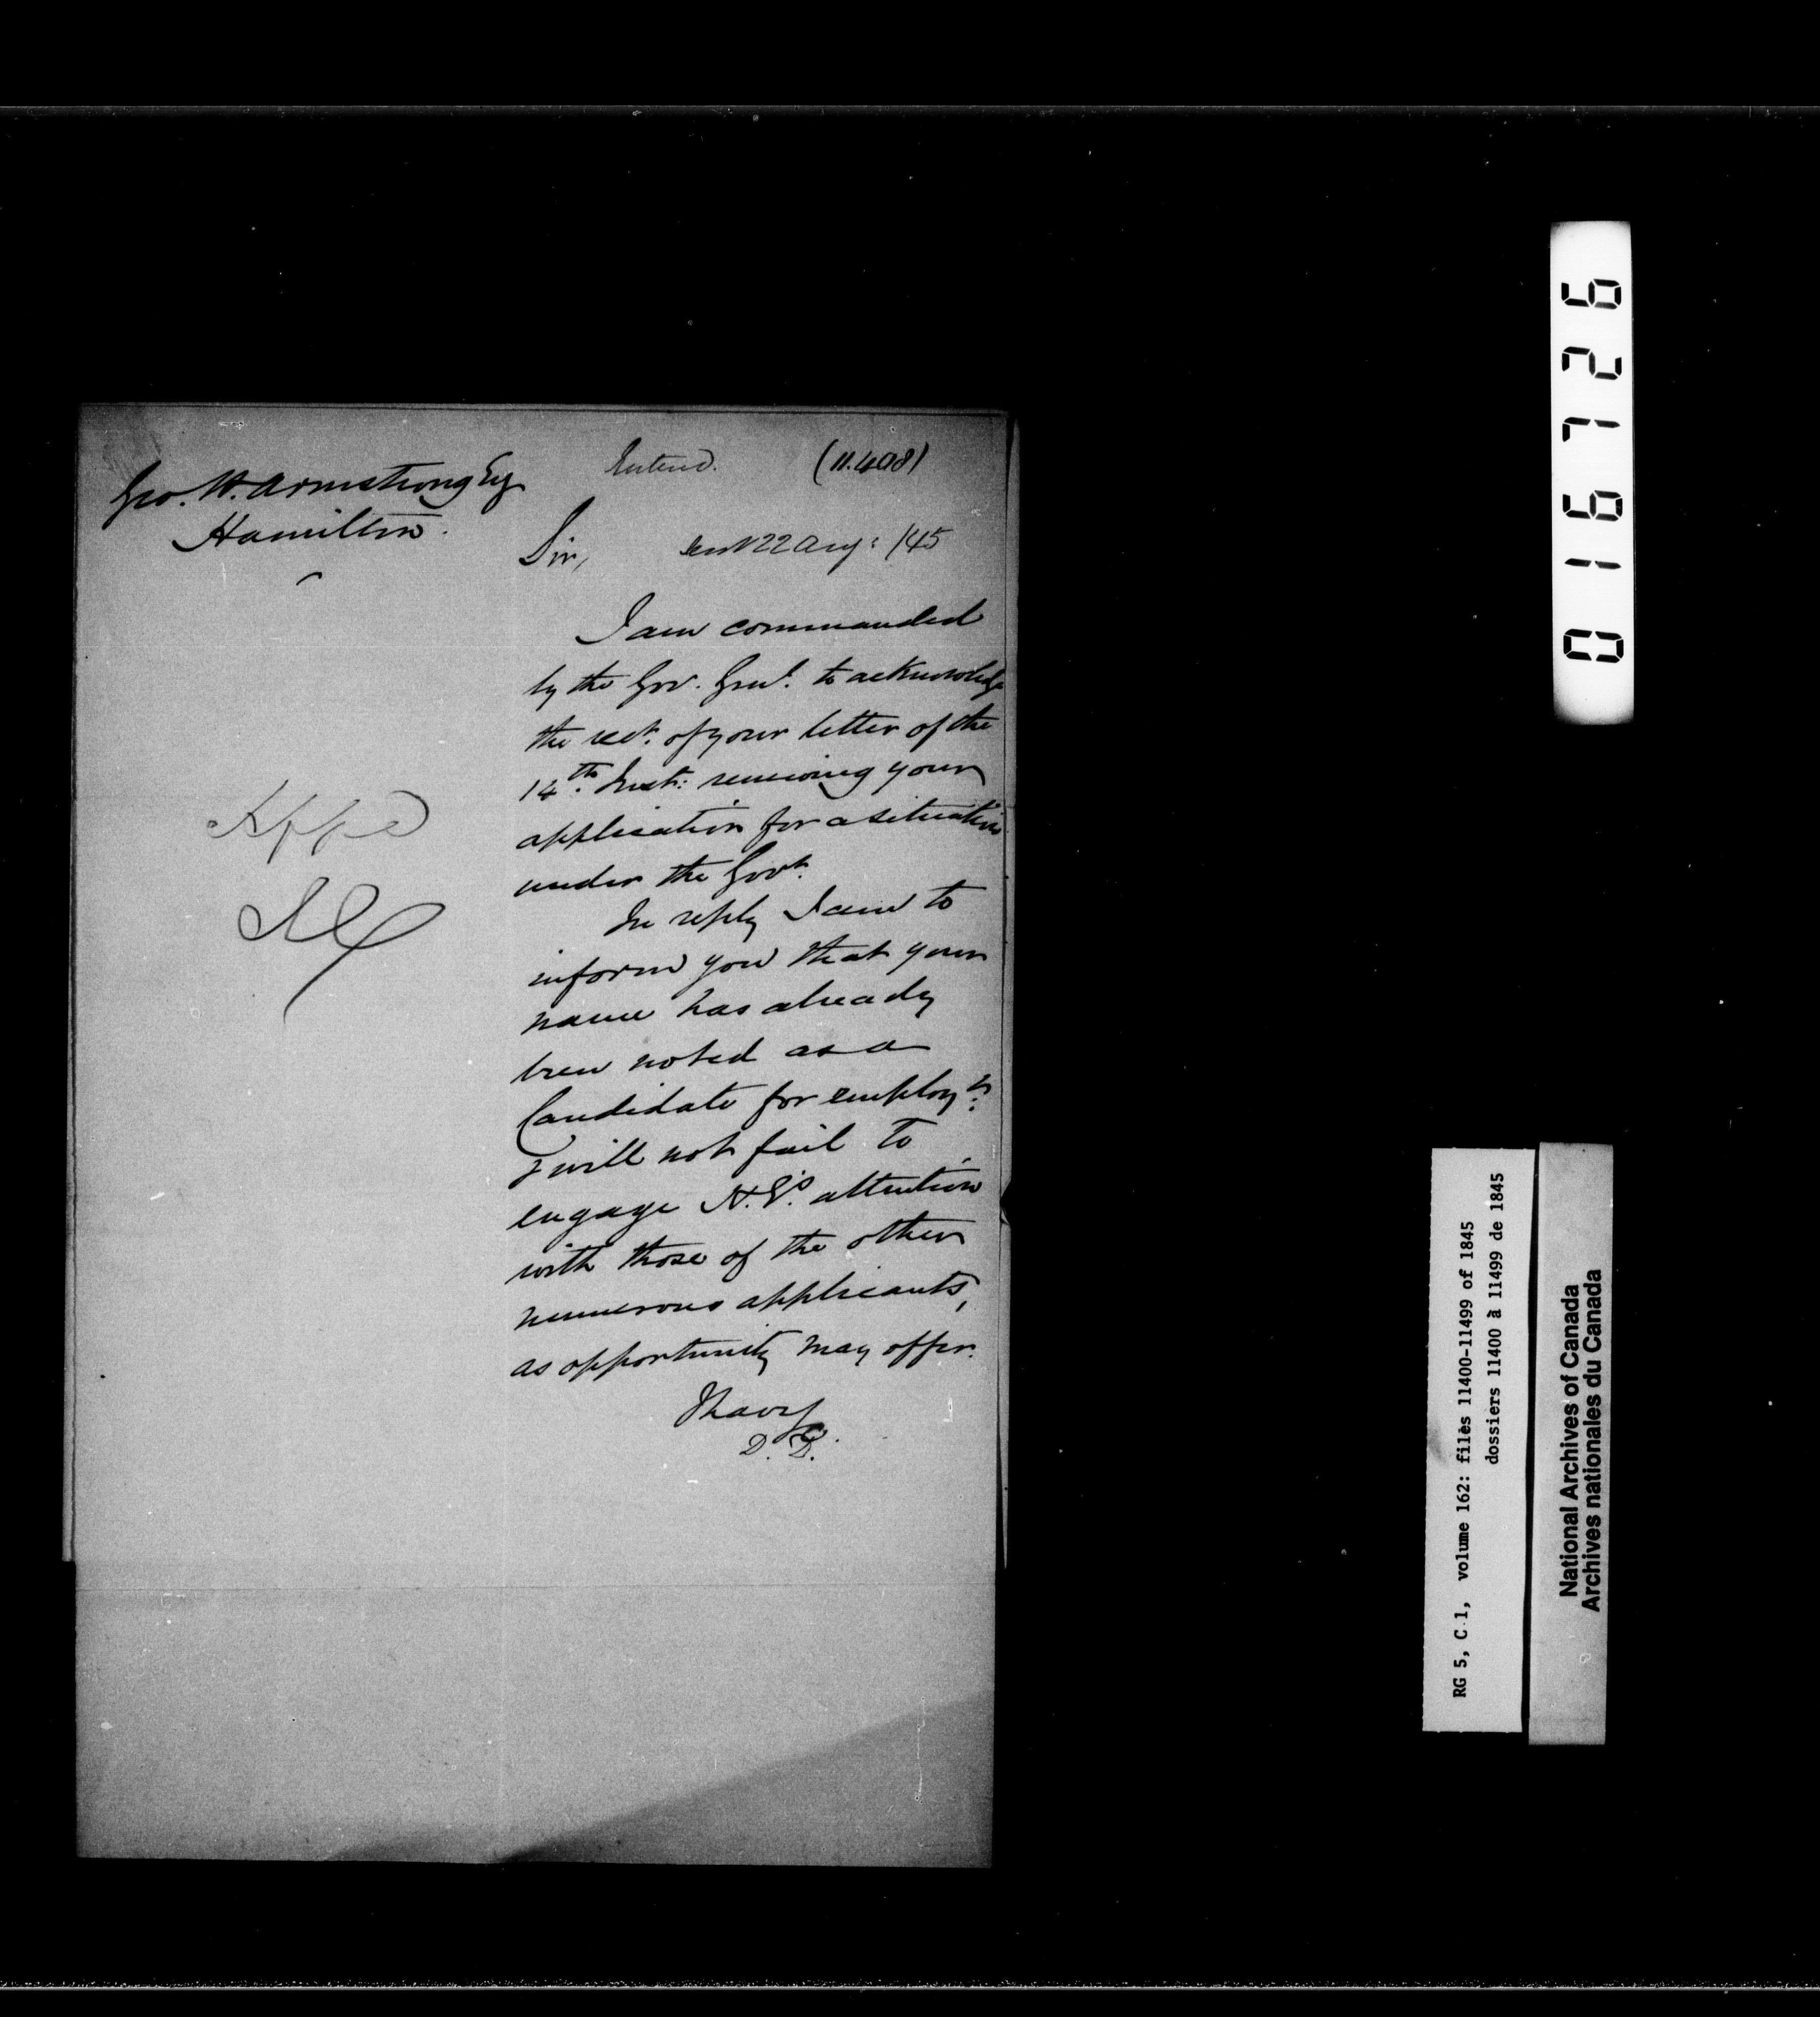 Entered. (11.498)
Geo. W. Armstrong Esq
Hamilton.
Sir, sent 22 Aug: /45
I am commanded
by the Gov. Genl. to acknowledge
the rect. of your letter of the
14th. Inst: renewing your
application for a situation
under the Govt.
In reply I am to
inform you that your
name has already
been noted as a
Candidate for employt:
& will not fail to
engage H. E's. attention
with those of the other
numerous applicants,
as opportunity may offer.
I have &c.
D. D.
Appd
016726
RG 5, C 1, volume 162: files 11400-11499 of 1845
dossiers 11400 à 11499 de 1845
National Archives of Canada
Archives nationales du Canada